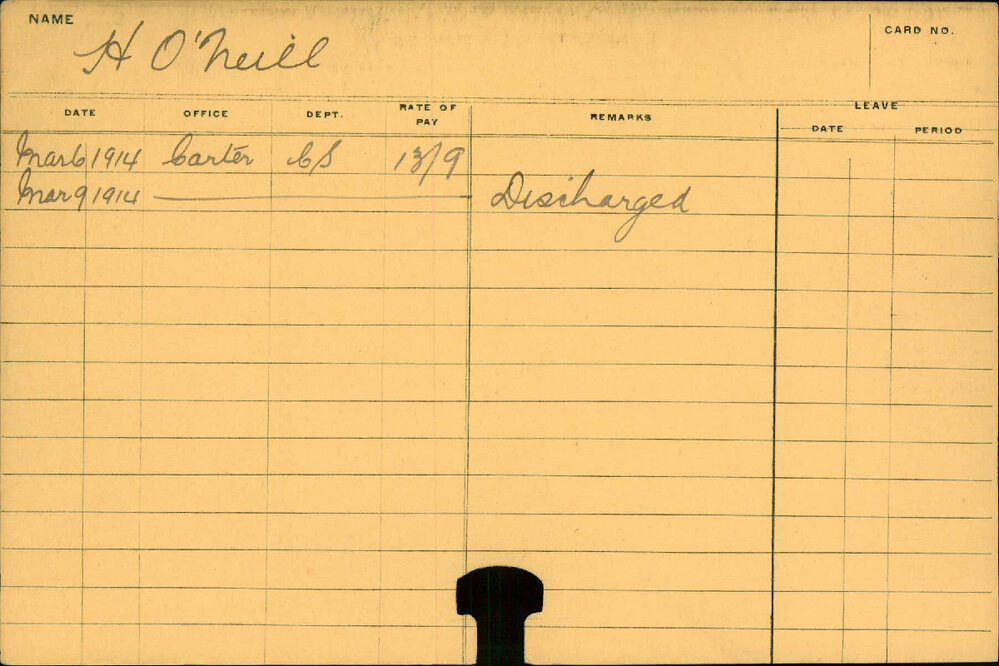 NAME
H O'Neill
CARD NO.
DATE OFFICE DEPT. RATE OF PAY REMARKS LEAVE
DATE PERIOD
Mar 6 1914 Carter CS 13/9
Mar 9 1914 Discharged